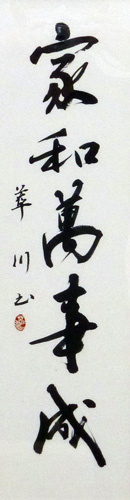 家和萬事成
華川書